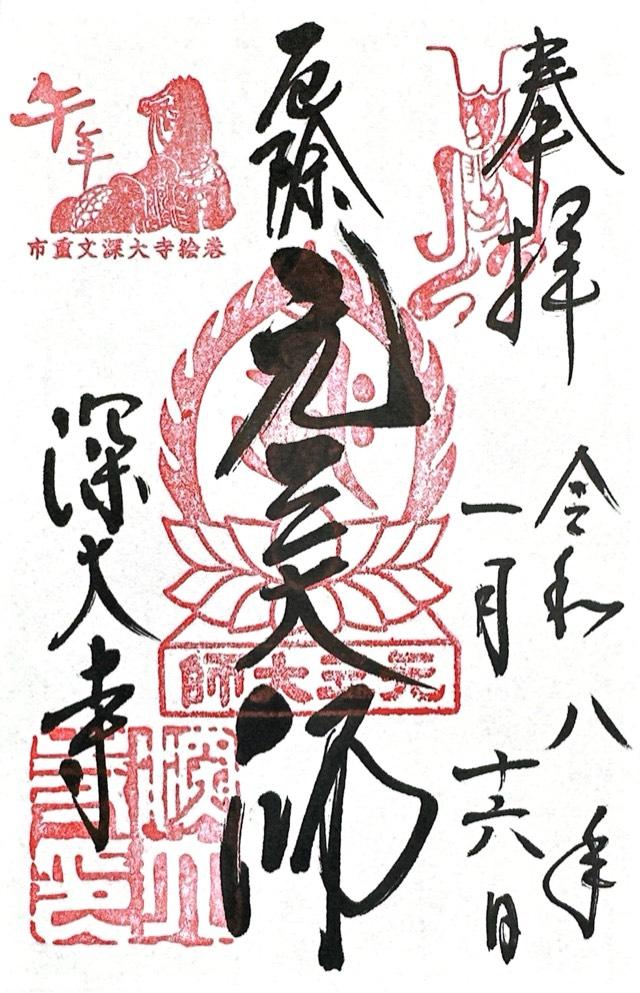 奉拝
令和八年
一月十六日
厄除
元三大師
深大寺
午年
市重文深大寺絵巻
元三大師